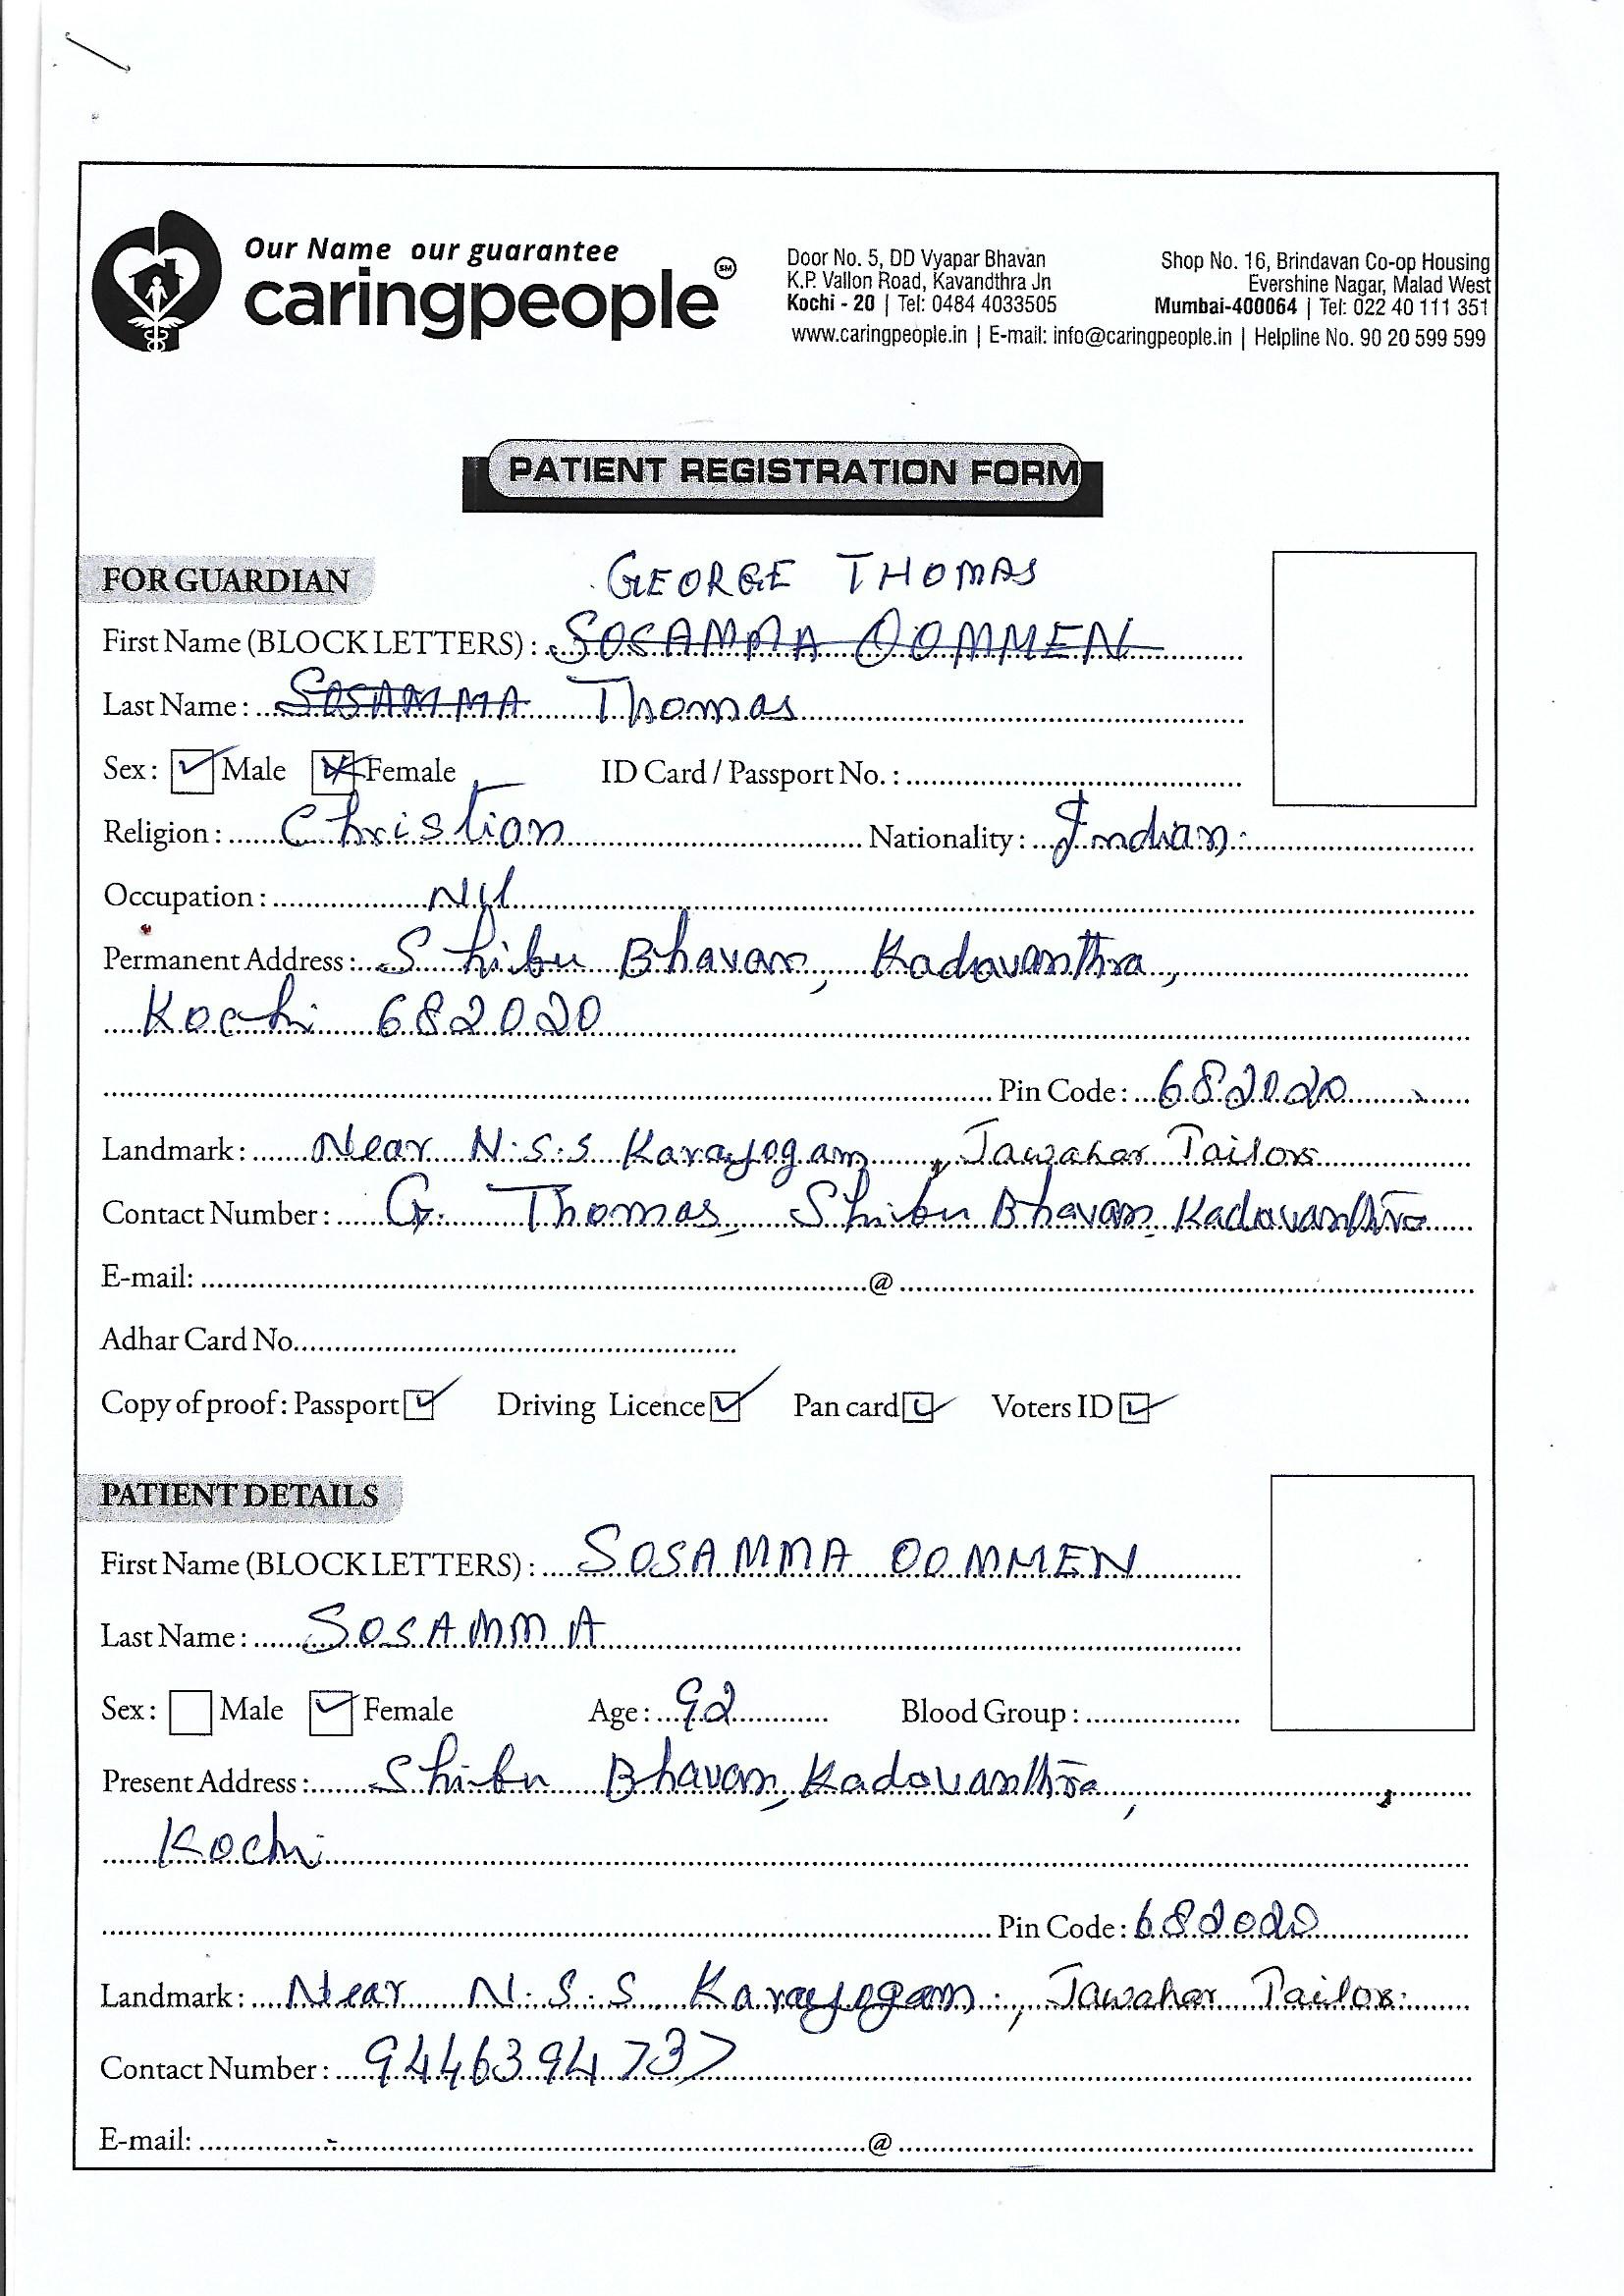 Our Name our guarantee
caringpeople SM
Door No. 5, DD Vyapar Bhavan
K.P. Vallon Road, Kavandthra Jn
Kochi - 20 | Tel: 0484 4033505
Shop No. 16, Brindavan Co-op Housing
Evershine Nagar, Malad West
Mumbai-400064 | Tel: 022 40 111 351
www.caringpeople.in | E-mail: info@caringpeople.in | Helpline No. 90 20 599 599
PATIENT REGISTRATION FORM
FOR GUARDIAN
GEORGE THOMAS
First Name (BLOCK LETTERS) : SOSAMMA OOMMEN
Last Name : SOSAMMA Thomas
Sex : Male Female ID Card / Passport No. :
Religion : Christian Nationality : Indian
Occupation : Nil
Permanent Address : Shibu Bhavan, Kadavanthra,
Kochi 682020
Pin Code : 682020
Landmark : Near N.S.S Karayogam, Jawahar Tailors
Contact Number : G. Thomas, Shibu Bhavan, Kadavanthra
E-mail: @
Adhar Card No.
Copy of proof : Passport Driving Licence Pan card Voters ID
PATIENT DETAILS
First Name (BLOCK LETTERS) : SOSAMMA OOMMEN
Last Name : SOSAMMA
Sex : Male Female Age : 92 Blood Group :
Present Address : Shibu Bhavan, Kadavanthra,
Kochi
Pin Code : 682020
Landmark : Near N.S.S Karayogam, Jawahar Tailor
Contact Number : 9446394737
E-mail: @